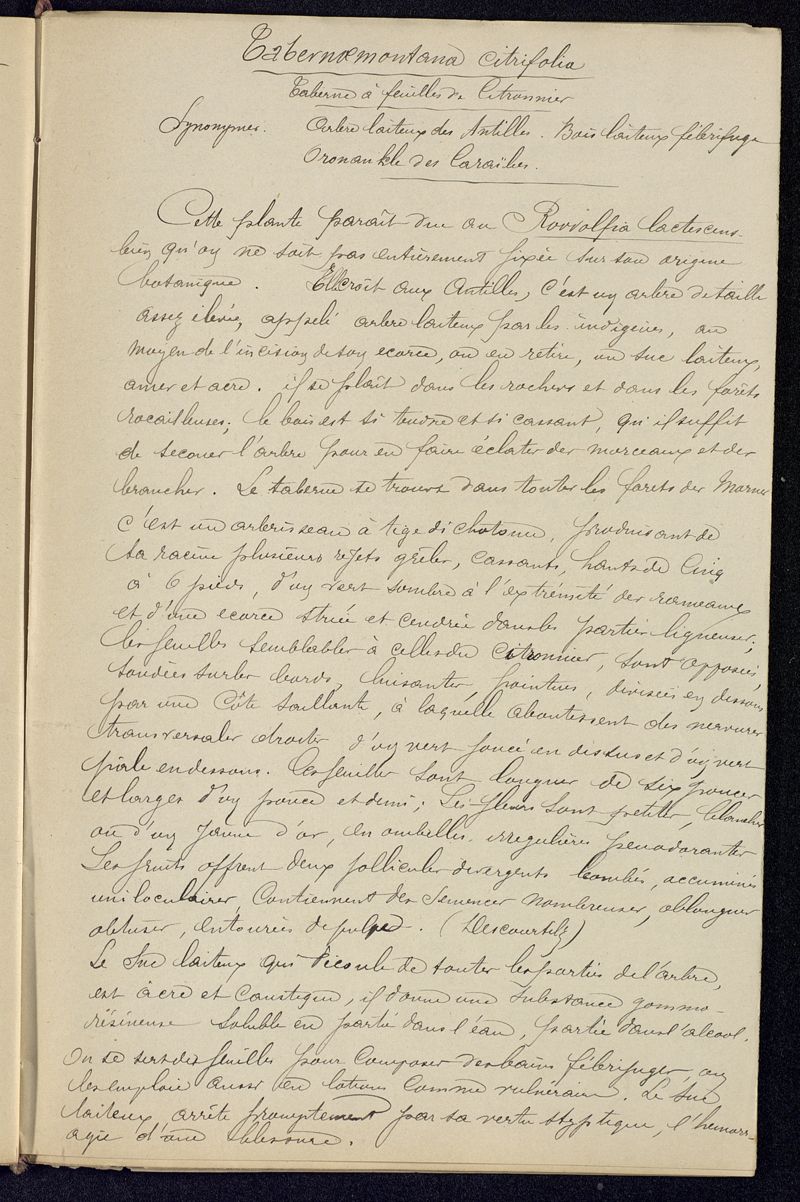 Tabernœmontana citrifolia
Taberne à feuilles de Citronnier
Synonymes. Arbre laiteux des Antilles. Bois laiteux fébrifuge
Oronankle des Caraïbes.
Cette plante paraît due au Rovvolfia lactescens
bien qu'on ne soit pas entièrement fixée sur son origine
botanique. Elle croît aux Antilles, c'est un arbre de taille
assez élevée, appelé arbre laiteux par les indigènes, au
moyen de l'incision de son ecorce, on en retire, un suc laiteux,
amer et acre. il se plaît dans les rochers et dans les forêts
rocailleuses; le bois est si tendre et si cassant, qu'il suffit
de secouer l'arbre pour en faire éclater des morceaux et des
branches. Le taberne se trouve dans toutes les forets des Mornes
c'est un arbrisseau à tige dichotome, produisant de
sa racine plusieurs rejets grêles, cassants, hauts de Cinq
à 6 pieds, d'un vert sombre à l'extrémité des rameaux
et d'une ecorce striée et cendrée dans les parties ligneuses;
les feuilles semblables à celles du citronnier, sont opposées,
soudées sur les bords, luisantes, pointues, divisées en dessous
par une Côte saillante, à laquelle aboutissent des nervures
transversales droites d'un vert foncé en dessus et d'un vert
pâle en dessous. Ces feuilles sont longues de six pouces
et larges d'un pouce et demi; Les fleurs sont petites, blanches
ou d'un Jaune d'or, en ombelles irregulières peu odorantes
Les fruits offrent deux follicules divergents bombés, accuminés
uniloculaires, Contiennent des Semences nombreuses, oblongues
obtuses, entourées de pulpe. (Descourtilz)
Le Suc laiteux qui découle de toutes les parties de l'arbre,
est âcre et caustique, il donne une substance gommo-
résineuse soluble en partie dans l'eau, partie dans l'alcool.
On se sert des feuilles pour composer des bains fébrifuges, on
les emploie aussi en lotions comme vulnéraire. Le Suc
laiteux arrête promptement par sa vertu styptique, l'hemorr-
agie d'une blessure.